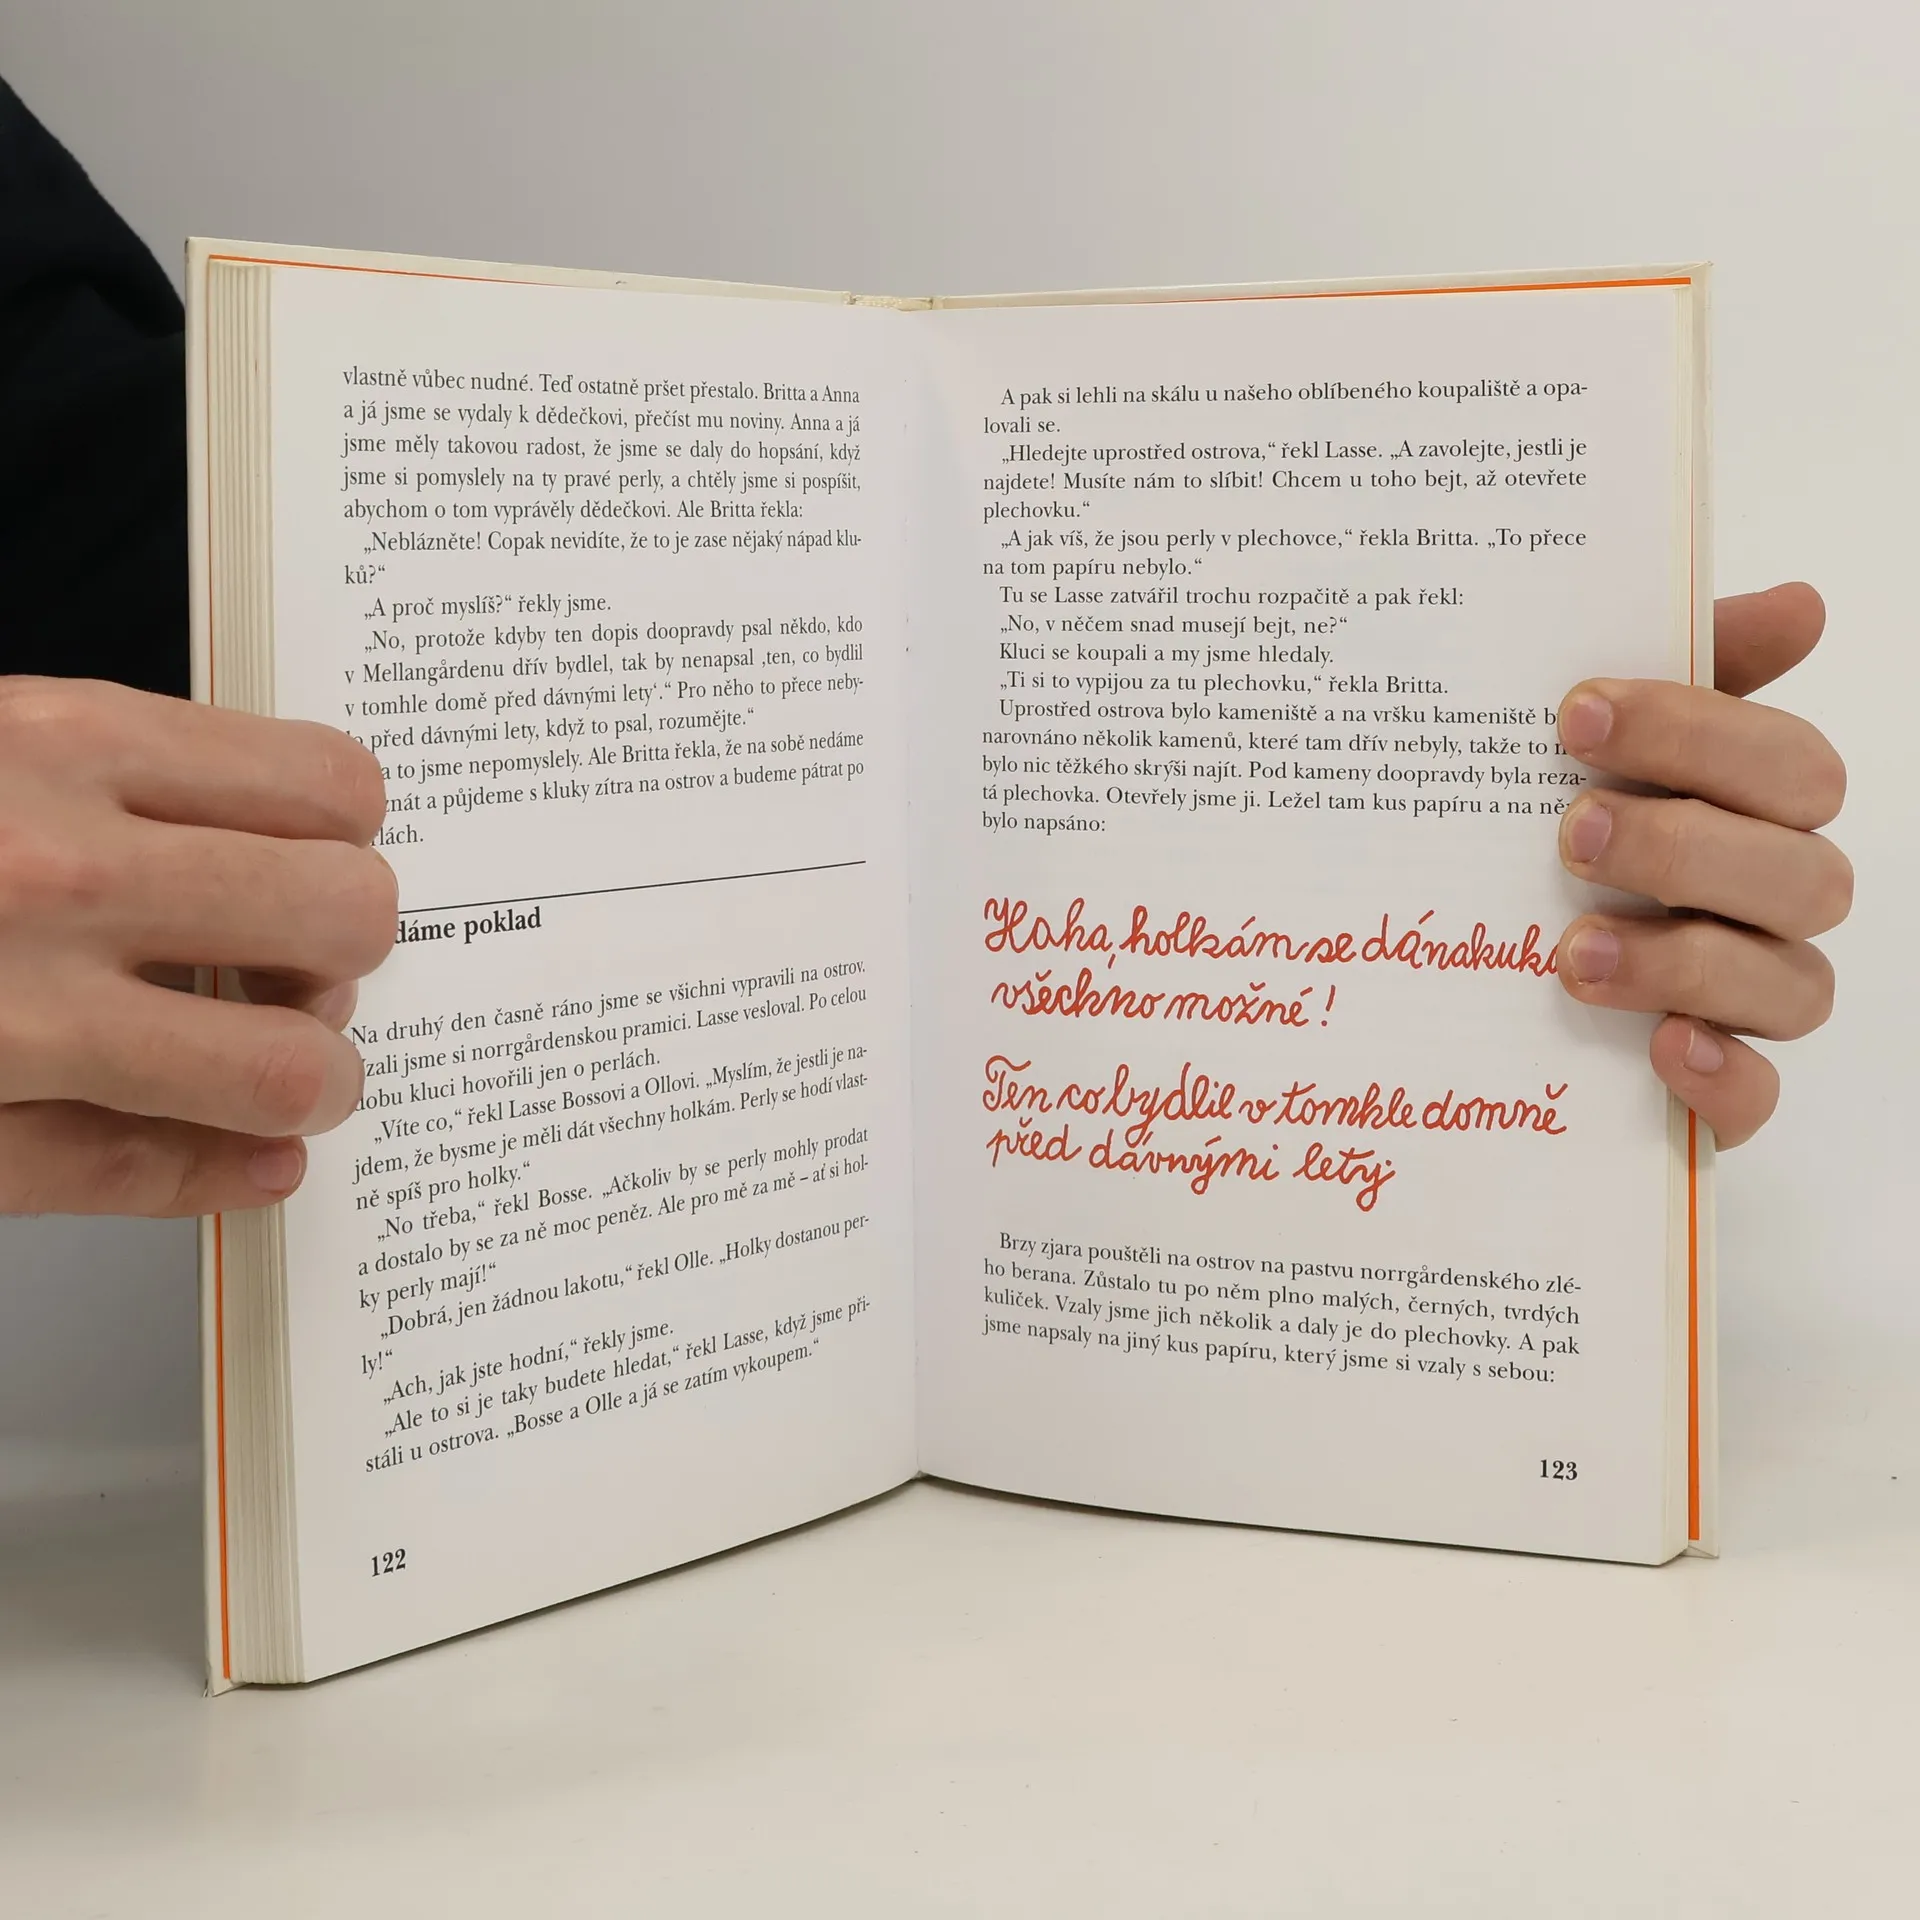 vlastně vůbec nudné. Teď ostatně pršet přestalo. Britta a Anna
a já jsme se vydaly k dědečkovi, přečíst mu noviny. Anna a já
jsme měly takovou radost, že jsme se daly do hopsání, když
jsme si pomyslely na ty pravé perly, a chtěly jsme si pospíšit,
abychom o tom vyprávěly dědečkovi. Ale Britta řekla:
„Neblázněte! Copak nevidíte, že to je zase nějaký nápad klu-
ků?“
„A proč myslíš?“ řekly jsme.
„No, protože kdyby ten dopis doopravdy psal někdo, kdo
v Mellangårdenu dřív bydlel, tak by nenapsal ‚ten, co bydlil
v tomhle domě před dávnými lety‘.“ Pro něho to přece neby-
před dávnými lety, když to psal, rozumějte.“
to jsme nepomyslely. Ale Britta řekla, že na sobě nedáme
a půjdeme s kluky zítra na ostrov a budeme pátrat po
poklad
Na druhý den časně ráno jsme se všichni vypravili na ostrov.
jsme si norrgårdenskou pramici. Lasse vesloval. Po celou
dobu kluci hovořili jen o perlách.
„Víte co,“ řekl Lasse Bossovi a Ollovi. „Myslím, že jestli je na-
jdem, že bysme je měli dát všechny holkám. Perly se hodí vlast-
ně spíš pro holky.“
„No třeba,“ řekl Bosse. „Ačkoliv by se perly mohly prodat
a dostalo by se za ně moc peněz. Ale pro mě za mě – ať si hol-
ky perly mají!“
„Dobrá, jen žádnou lakotu,“ řekl Olle. „Holky dostanou per-
ly!“
„Ach, jak jste hodní,“ řekly jsme.
„Ale to si je taky budete hledat,“ řekl Lasse, když jsme při-
stáli u ostrova. „Bosse a Olle a já se zatím vykoupem.“
122
A pak si lehli na skálu u našeho oblíbeného koupaliště a opa-
lovali se.
„Hledejte uprostřed ostrova,“ řekl Lasse. „A zavolejte, jestli je
najdete! Musíte nám to slíbit! Chcem u toho bejt, až otevřete
plechovku.“
„A jak víš, že jsou perly v plechovce,“ řekla Britta. „To přece
na tom papíru nebylo.“
Tu se Lasse zatvářil trochu rozpačitě a pak řekl:
„No, v něčem snad musejí bejt, ne?“
Kluci se koupali a my jsme hledaly.
„Ti si to vypijou za tu plechovku,“ řekla Britta.
Uprostřed ostrova bylo kameniště a na vršku kameniště
narovnáno několik kamenů, které tam dřív nebyly, takže to
bylo nic těžkého skrýši najít. Pod kameny doopravdy byla reza-
tá plechovka. Otevřely jsme ji. Ležel tam kus papíru a na
bylo napsáno:
Haha, holkám se dá nakuka
všechno možné!
Ten co bydlil v tomhle domně
před dávnými lety.
Brzy zjara pouštěli na ostrov na pastvu norrgårdenského zlé-
ho berana. Zůstalo tu po něm plno malých, černých, tvrdých
kuliček. Vzaly jsme jich několik a daly je do plechovky. A pak
jsme napsaly na jiný kus papíru, který jsme si vzaly s sebou:
123